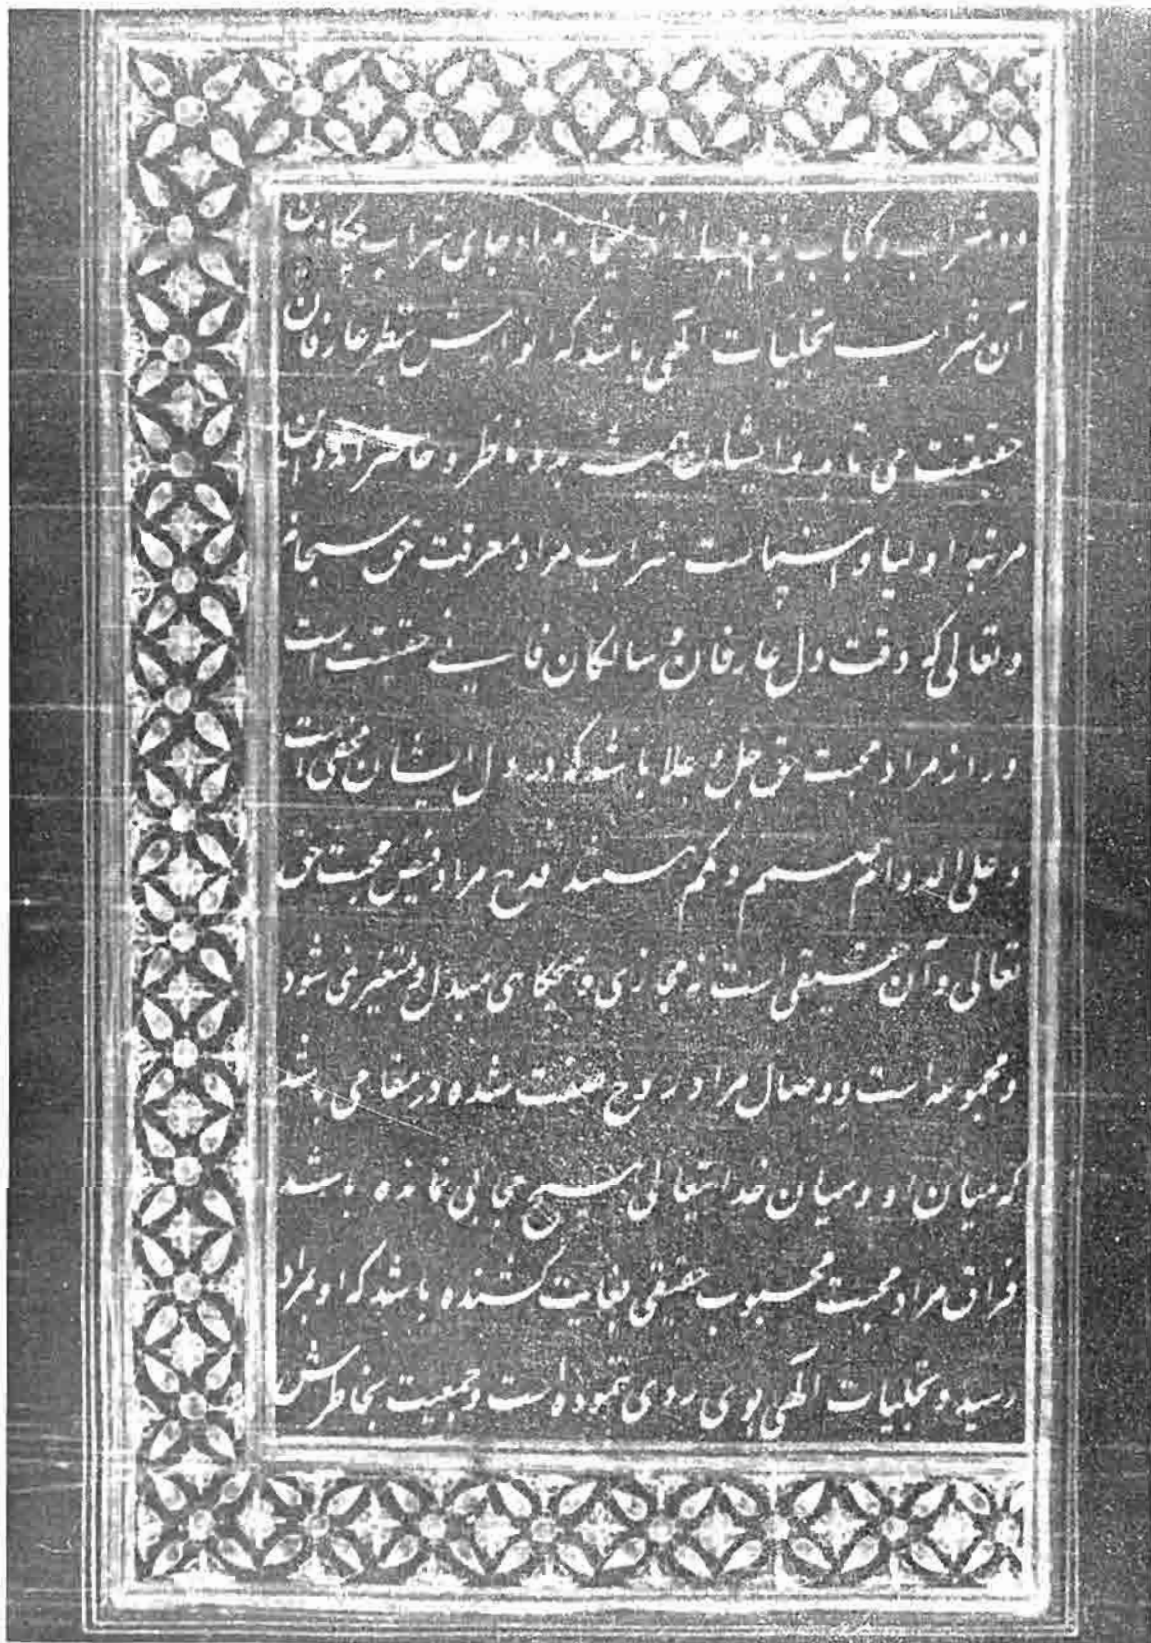 و شراب و کباب جای شراب
آن شراب تجلیات الهی باشد که انوارش بنظر عارفان
حقیقت می تابد و ایشان همیشه بدو ناظر و حاضراند و این
مرتبه اولیا و انبیاست شراب مراد معرفت حق سبحانه
و تعالی که وقت دل عارفان و سالکان فانی حقیقت است
و راز مراد محبت حق جل و علا باشد که در دل ایشان مخفی است
و علی الدوام صم و بکم هستند قدح مراد فیض محبت حق
تعالی و آن حقیقی است نه مجازی و هیچگاهی مبدل و متغیر نمی شود
و مجموعه است و وصال مراد روح صفت شده در مقامی باشد
که میان او و میان خدایتعالی هیچ حجابی نمانده باشد
فراق مراد محبت محبوب حقیقی بغایت کشنده باشد که او بمراد
رسید و تجلیات الهی بوی روی ننموده است و جمعیت بخاطرش